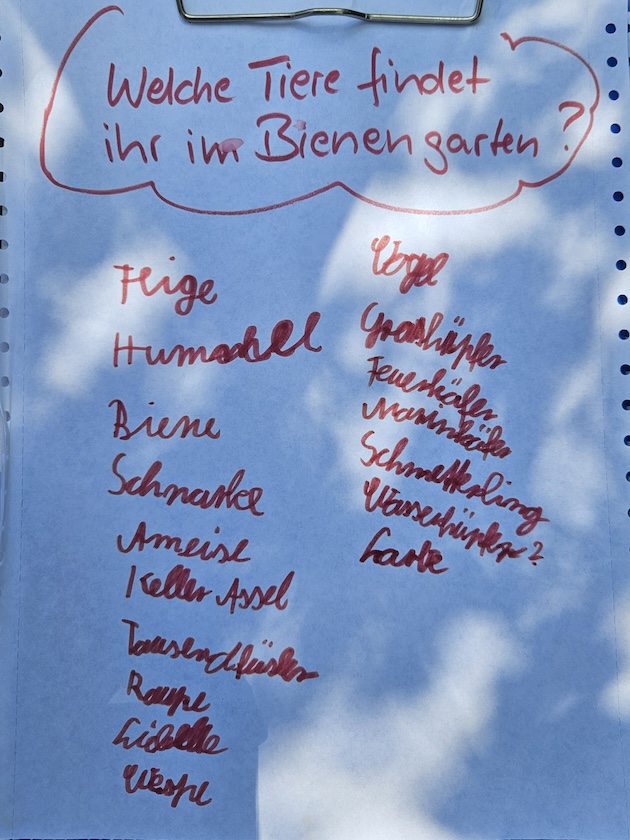 Welche Tiere findet
ihr im Bienengarten?
Flige
Biene
Schnacke
Ameise
Keller Assel
Tausendfüsler
Raupe
Libelle
Wespe
Vögel
Grashüpfer
Feuerkäfer
Marinkäfer
Schmetterling